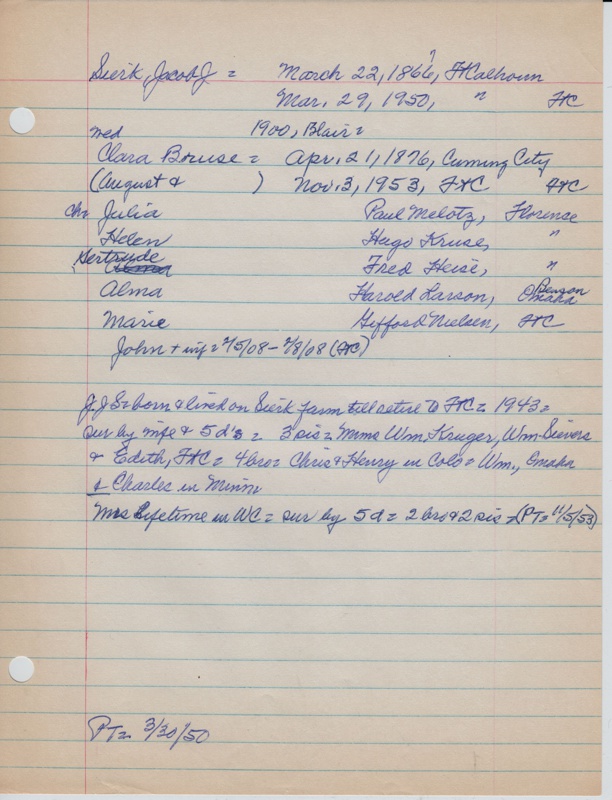 Sierk, Jacob J = March 22, 1866, FtCalhoun
?
Mar. 29, 1950, " FtC
wed 1900, Blair =
Clara Bruse = Apr. 21, 1876, Cuming City
(August & ) Nov. 3, 1953, FtC FtC
ch: Julia Paul Melotz, Florence
Helen Hugo Kruse, "
Gertrude Fred Heise, "
Alma
Alma Harold Larson, Omaha Benson
Marie Gifford Nielsen, FtC
John + inf = 2/5/08 – 2/8/08 (FtC)
J.J.S = born & lived on Sierk farm till retire to FtC = 1943 =
sur by wife & 5 d's = 3 sis = Mmes Wm. Kruger, Wm. Sievers
& Edith, FtC = 4 bro = Chris & Henry in Colo = Wm., Omaha
& Charles in Minn
Mrs Lifetime in WC = sur by 5 d = 2 bro & 2 sis = (PT = 11/5/53)
PT = 3/30/50